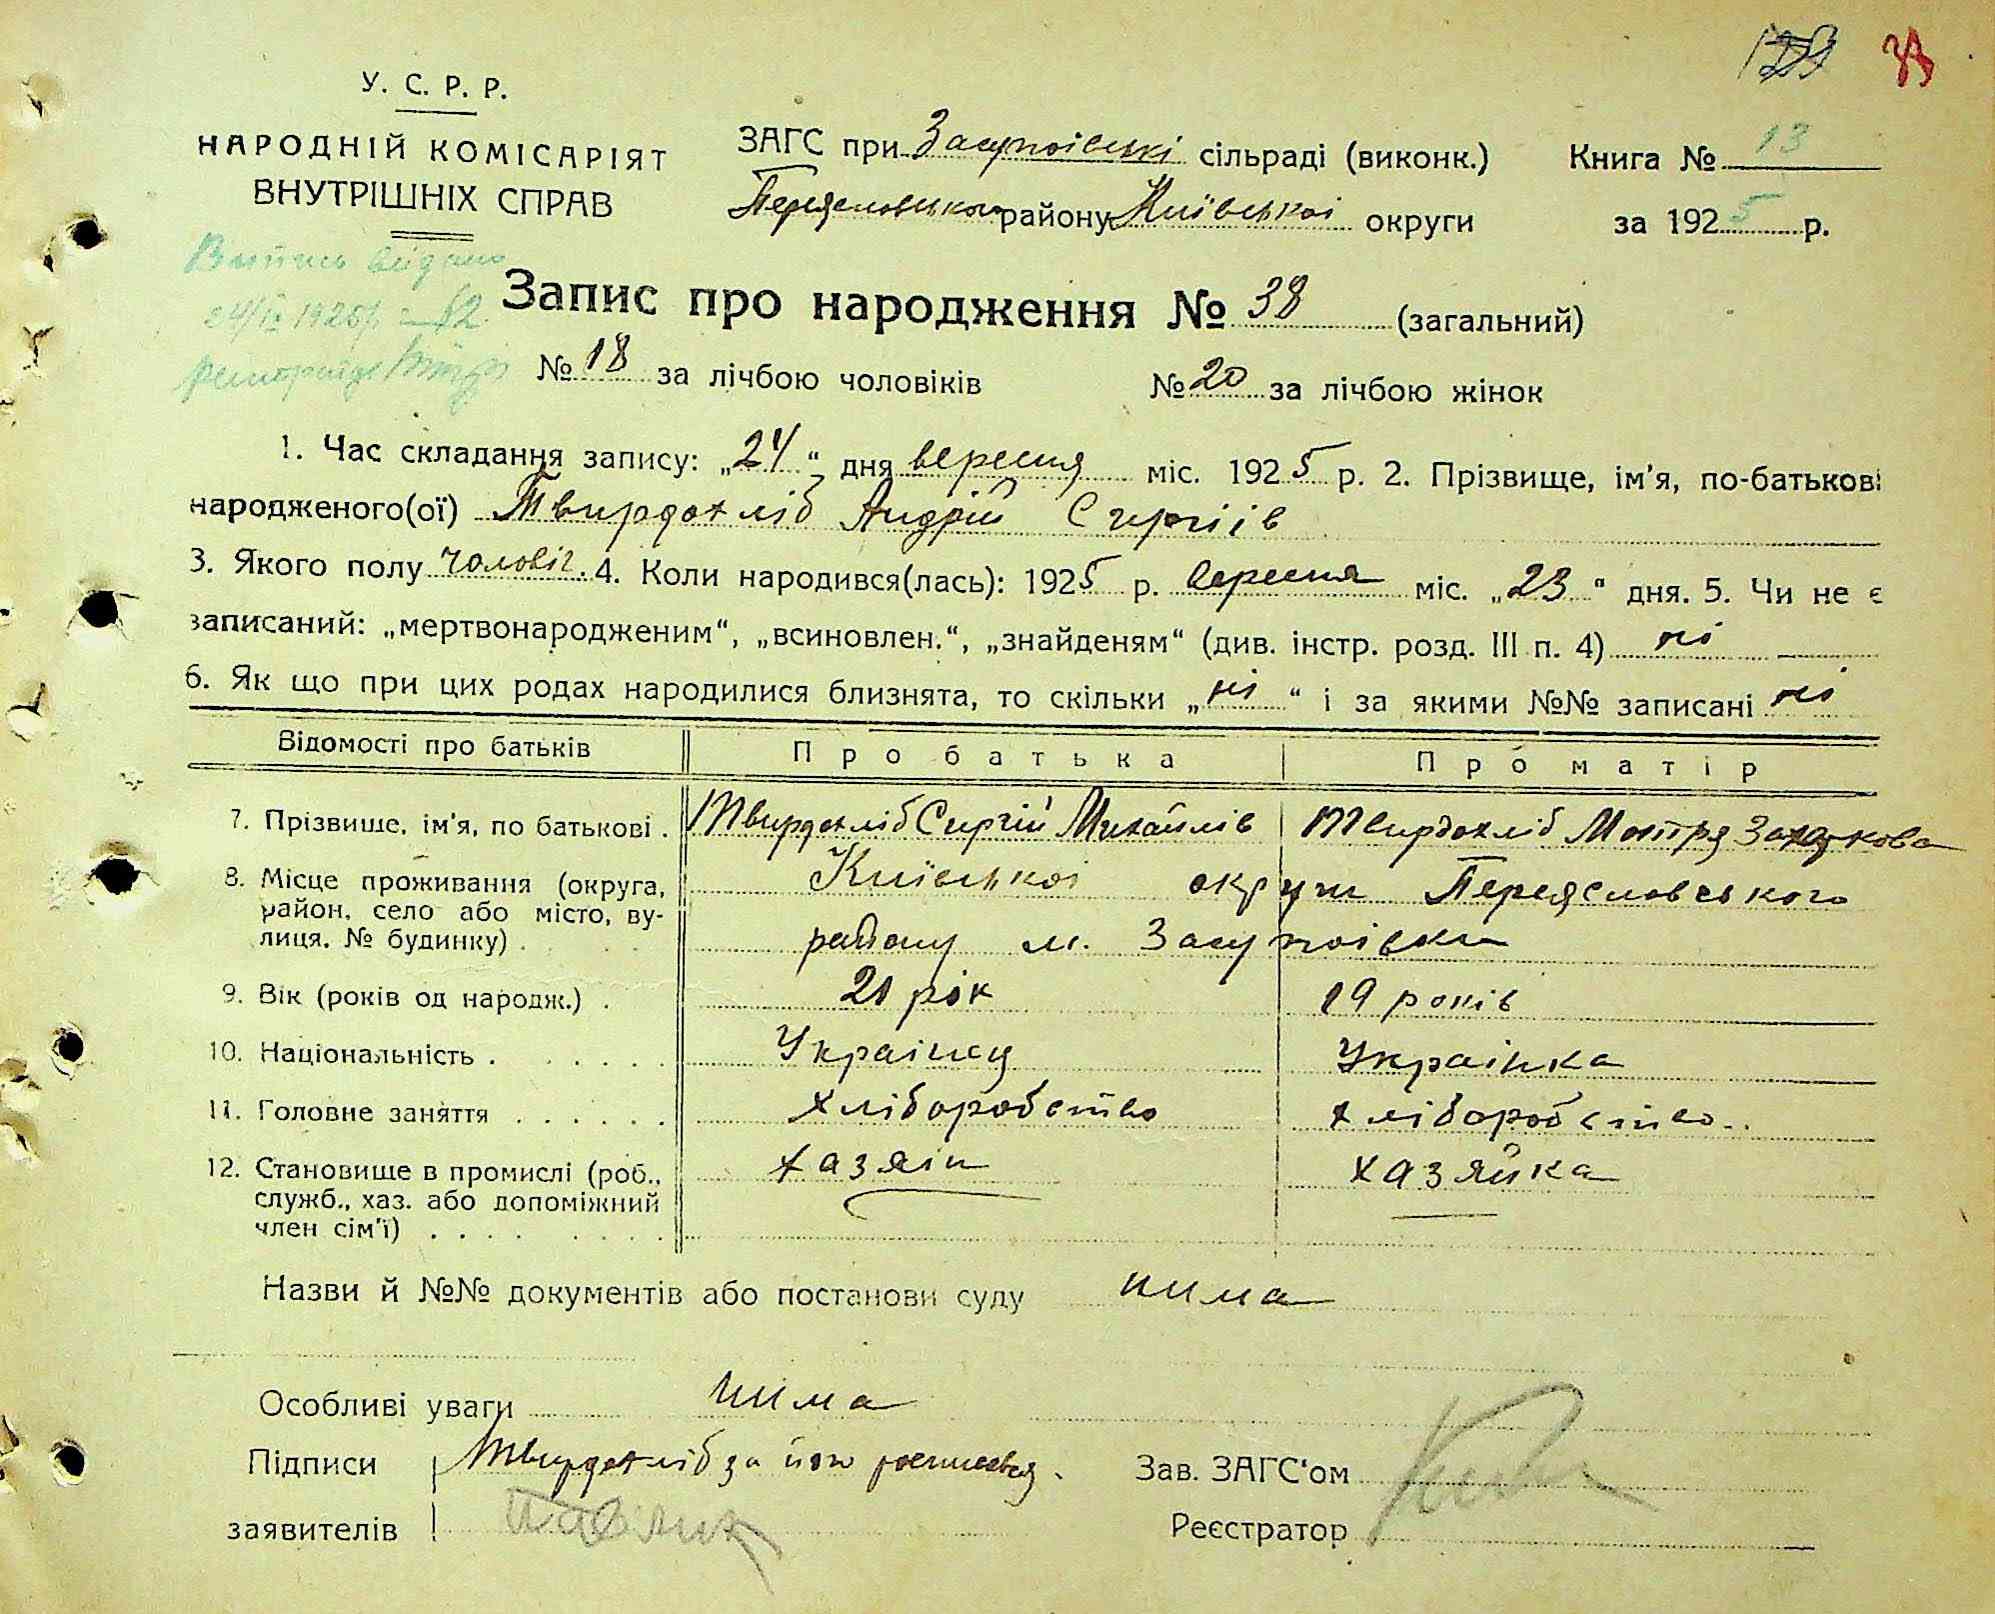 У. С. Р. Р.
НАРОДНІЙ КОМІСАРІЯТ
ВНУТРІШНІХ СПРАВ
ЗАГС при Засупоівські сільраді (виконк.) Книга № 13
Переясловського району Київськоі округи за 1925 р.
Випись видано
24/IX 1925 р. № 82
Запис про народження № 38 (загальний)
№ 18 за лічбою чоловіків № 20 за лічбою жінок
1. Час складання запису: „24“ дня вересня міс. 1925 р. 2. Прізвище, ім'я, по-батькові
народженого(ої) Твирдохліб Андрій Сиргіів
3. Якого полу чоловіч. 4. Коли народився(лась): 1925 р. вересня міс. „23“ дня. 5. Чи не є
записаний: „мертвонародженим“, „всиновлен.“, „знайденям“ (див. інстр. розд. III п. 4) ні
6. Як що при цих родах народилися близнята, то скільки „ні“ і за якими №№ записані ні
Відомості про батьків Про батька Про матір
7. Прізвище, ім'я, по батькові . Твирдохліб Сиргій Михайлів Твирдохліб Мотря Захаркова
8. Місце проживання (округа, район, село або місто, вулиця, № будинку) . Київськоі округи Переясловського
району м. Засупоівки
9. Вік (років од народж.) . 21 рік 19 років
10. Національність . . . . . . Украінец Украінка
11. Головне заняття . . . . . . хліборобство хліборобство..
12. Становище в промислі (роб., служб., хаз. або допоміжний член сім'ї) . . . . . . . . хазяін хазяйка
Назви й №№ документів або постанови суду нима
Особливі уваги нима
Підписи Твирдохліб за його росписався. Зав. ЗАГС'ом
заявителів Павлик Реєстратор